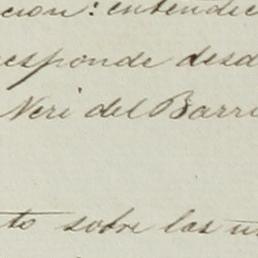 cion: entendie
responde desd
Neri del Barr
to sobre las u